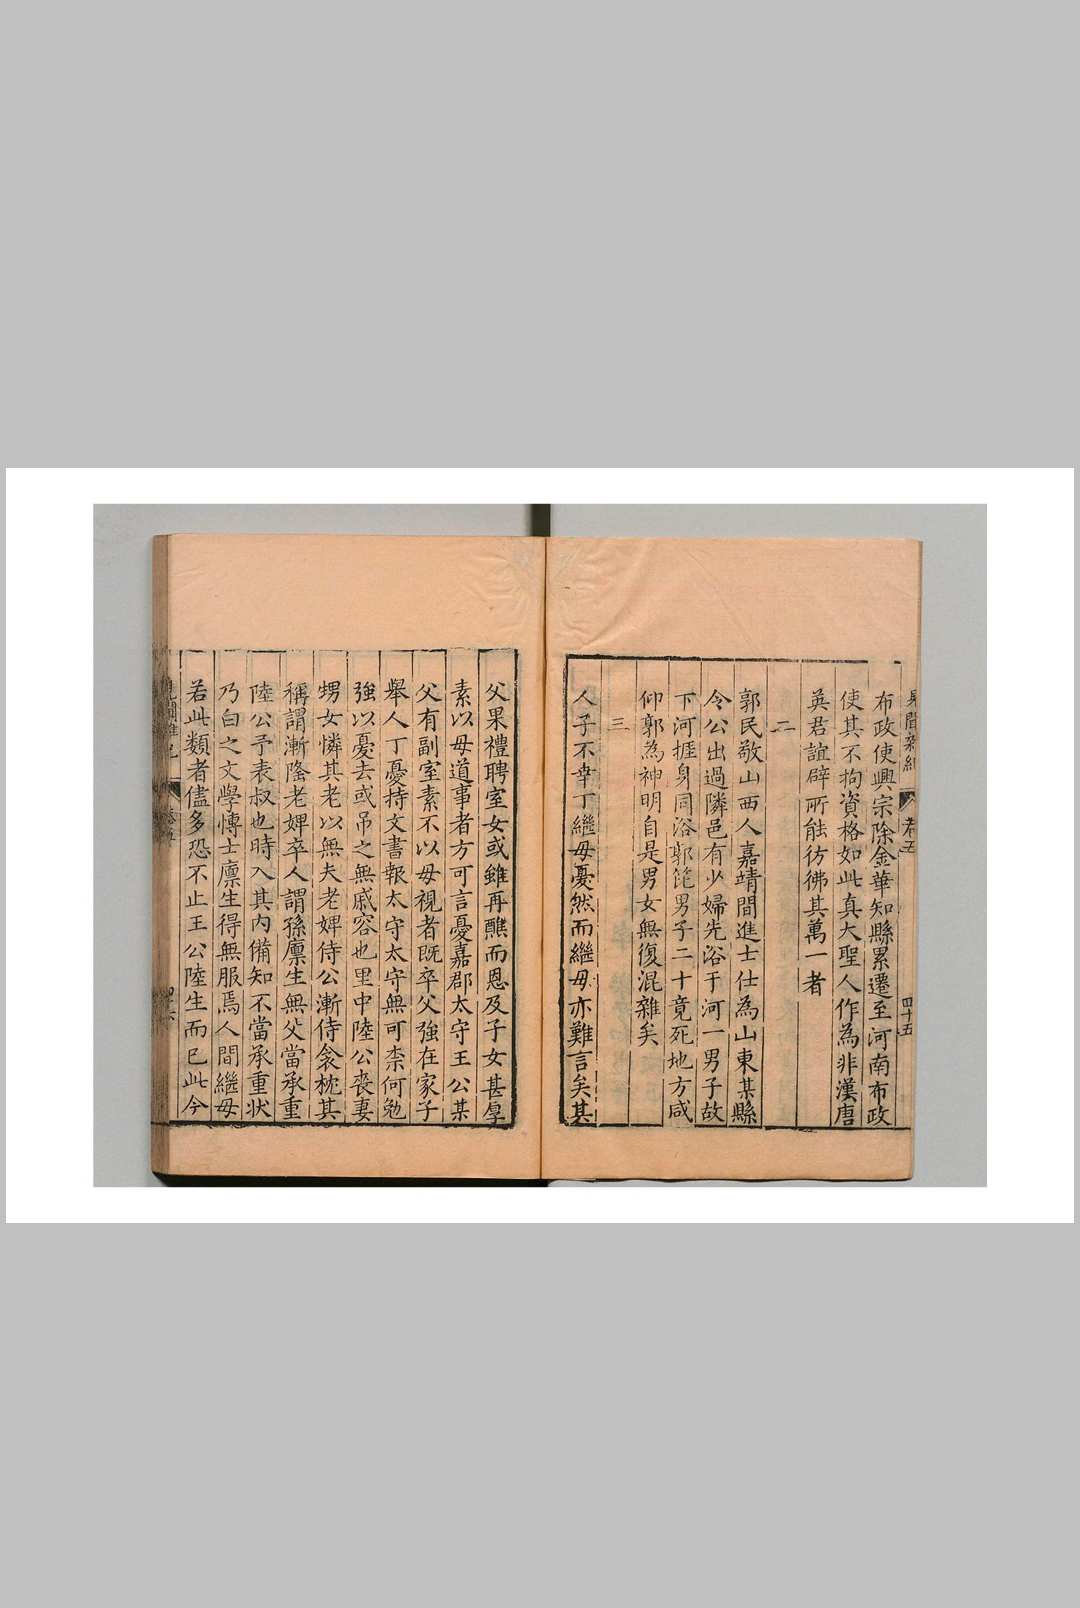 見聞雜紀 卷五 四十五
布政使興宗除金華知縣累遷至河南布政
使其不拘資格如此真大聖人作為非漢唐
英君誼辟所能彷彿其萬一者
二
郭民敬山西人嘉靖間進士仕為山東某縣
令公出過隣邑有少婦先浴于河一男子故
下河捱身同浴郭笓男子二十竟死地方咸
仰郭為神明自是男女無復混雜矣
三
人子不幸丁繼母憂然而繼母亦難言矣其
父果禮聘室女或雖再醮而恩及子女甚厚
素以母道事者方可言憂嘉郡太守王公某
父有副室素不以母視者既卒父強在家子
舉人丁憂持文書報太守太守無可柰何勉
強以憂去或吊之無戚容也里中陸公喪妻
甥女憐其老以無夫老婢侍公漸侍衾枕其
稱謂漸隆老婢卒人謂孫廪生無父當承重
陸公予表叔也時入其內備知不當承重狀
乃白之文學愽士廪生得無服焉人間繼母
若此類者儘多恐不止王公陸生而已此今
見聞雜紀 卷五 四十六